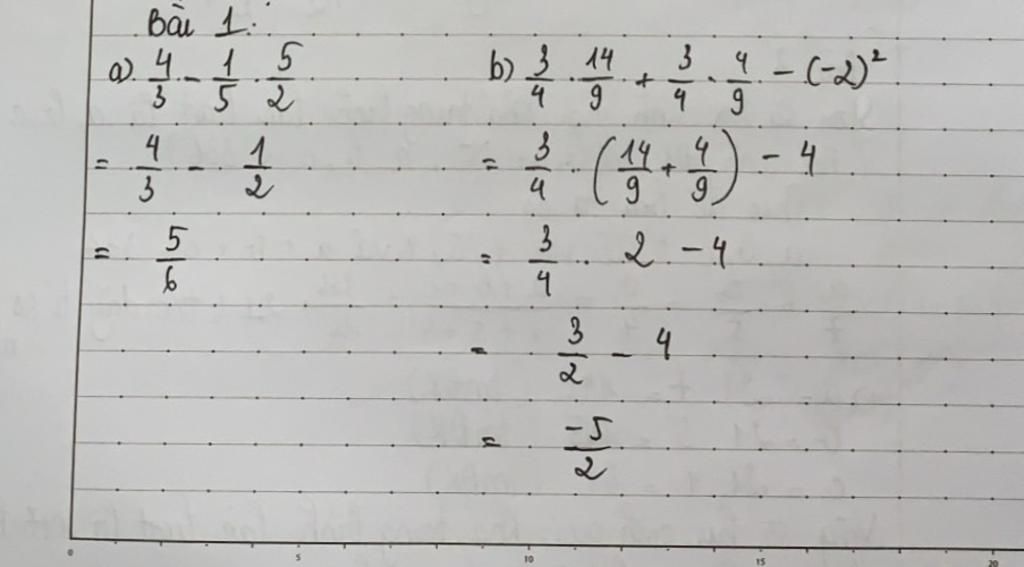 Bài 1:
a) 4/3 - 1/5 . 5/2
= 4/3 - 1/2
= 5/6
b) 3/4 . 14/9 + 3/4 . 4/9 - (-2)²
= 3/4 . (14/9 + 4/9) - 4
= 3/4 . 2 - 4
= 3/2 - 4
= -5/2
0 5 10 15 20